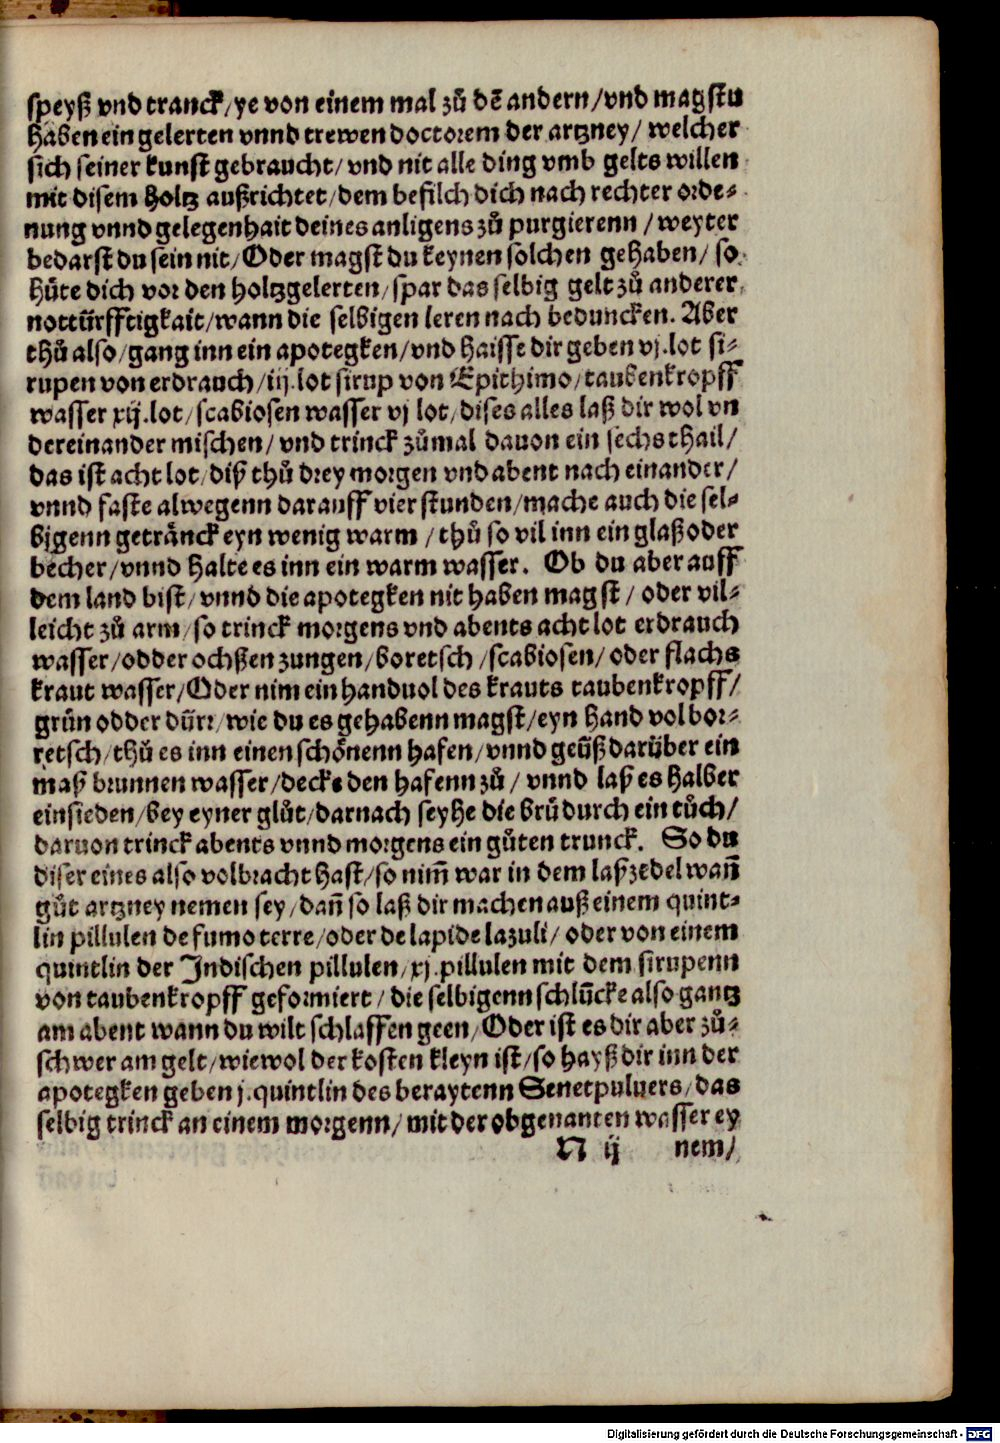 speyß vnd tranck/ye von einem mal zů dē andern/vnd magstu
haben ein gelerten vnnd trewen doctorem der artzney/ welcher
sich seiner kunst gebraucht/ vnd nit alle ding vmb gelts willen
mit disem holtz außrichtet/dem befilch dich nach rechter orde⸗
nung vnnd gelegenhait deines anligens zů purgierenn / weyter
bedarst du sein nit/Oder magst du keynen solchen gehaben/ so
hüte dich vor den holtzgelerten/spar das selbig gelt zů anderer
nottürfftigkait/wann die selbigen leren nach beduncken. Aber
thů also/gang inn ein apotegken/vnd haisse dir geben vj.lot si⸗
rupen von erdrauch/iij.lot sirup von Epithimo/taubenkropff
wasser xij.lot/scabiosen wasser vj lot/dises alles laß dir wol vn
dereinander mischen/ vnd trinck zůmal dauon ein sechsthail/
das ist acht lot/diß thů drey morgen vnd abent nach einander/
vnnd faste alwegenn darauff vier stunden/mache auch die sel⸗
bjgenn getränck eyn wenig warm / thů so vil inn ein glaß oder
becher/vnnd halte es inn ein warm wasser. Ob du aber auff
dem land bist/ vnnd die apotegken nit haben magst / oder vil⸗
leicht zů arm/so trinck morgens vnd abents acht lot erdrauch
wasser/odder ochßen zungen/boretsch /scabiosen/ oder flachs
kraut wasser/Oder nim ein handuol des krauts taubenkropff/
grün odder dürr/wie du es gehabenn magst/eyn hand vol bor⸗
retsch/thů es inn einen schönenn hafen/vnnd geüß darüber ein
maß brunnen wasser/decke den hafenn zů / vnnd laß es halber
einsieden/bey eyner glůt/darnach seyhe die brü durch ein tůch/
daruon trinck abents vnnd morgens ein gůten trunck. So du
diser eines also volbracht hast/so nim̄ war in dem laßzedel wañ
gůt artzney nemen sey/dañ so laß dir machen auß einem quint⸗
lin pillulen de fumo terre/oder de lapide lazuli/ oder von einem
quintlin der Indischen pillulen/xj.pillulen mit dem sirupenn
von taubenkropff geformiert / die selbigenn schlücke also gantz
am abent wann du wilt schlaffen geen/Oder ist es dir aber zů⸗
schwer am gelt/wiewol der kosten kleyn ist/so hayß dir inn der
apotegken geben j.quintlin des beraytenn Senetpuluers/das
selbig trinck an einem morgenn/ mit der obgenanten wasser ey
N ij nem/
Digitalisierung gefördert durch die Deutsche Forschungsgemeinschaft - DFG